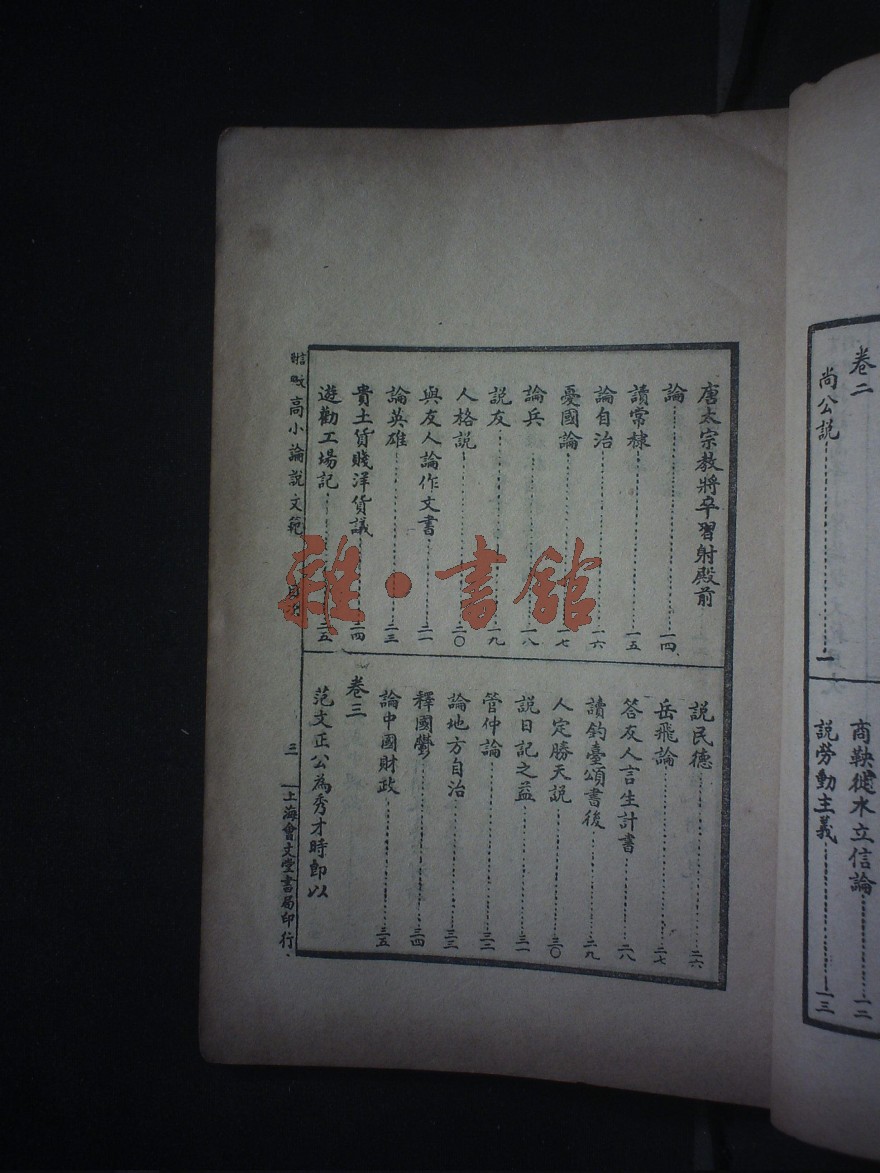 卷二
尚公說……一
商鞅徙木立信論……一二
說勞動主義……一三
唐太宗教將卒習射殿前
論……一四
讀常棣……一五
論自治……一六
憂國論……一七
論兵……一八
說友……一九
人格說……二〇
與友人論作文書……二一
論英雄……二三
貴土貨賤洋貨議……二四
遊勸工場記……二五
說民德……二六
岳飛論……二七
答友人言生計書……二八
讀釣臺頌書後……二九
人定勝天說……三〇
說日記之益……三一
管仲論……三二
論地方自治……三三
釋國鬱……三四
論中國財政……三五
卷三
范文正公為秀才時即以
高小論說文範
目次
三
上海會文堂書局印行
雜·書館